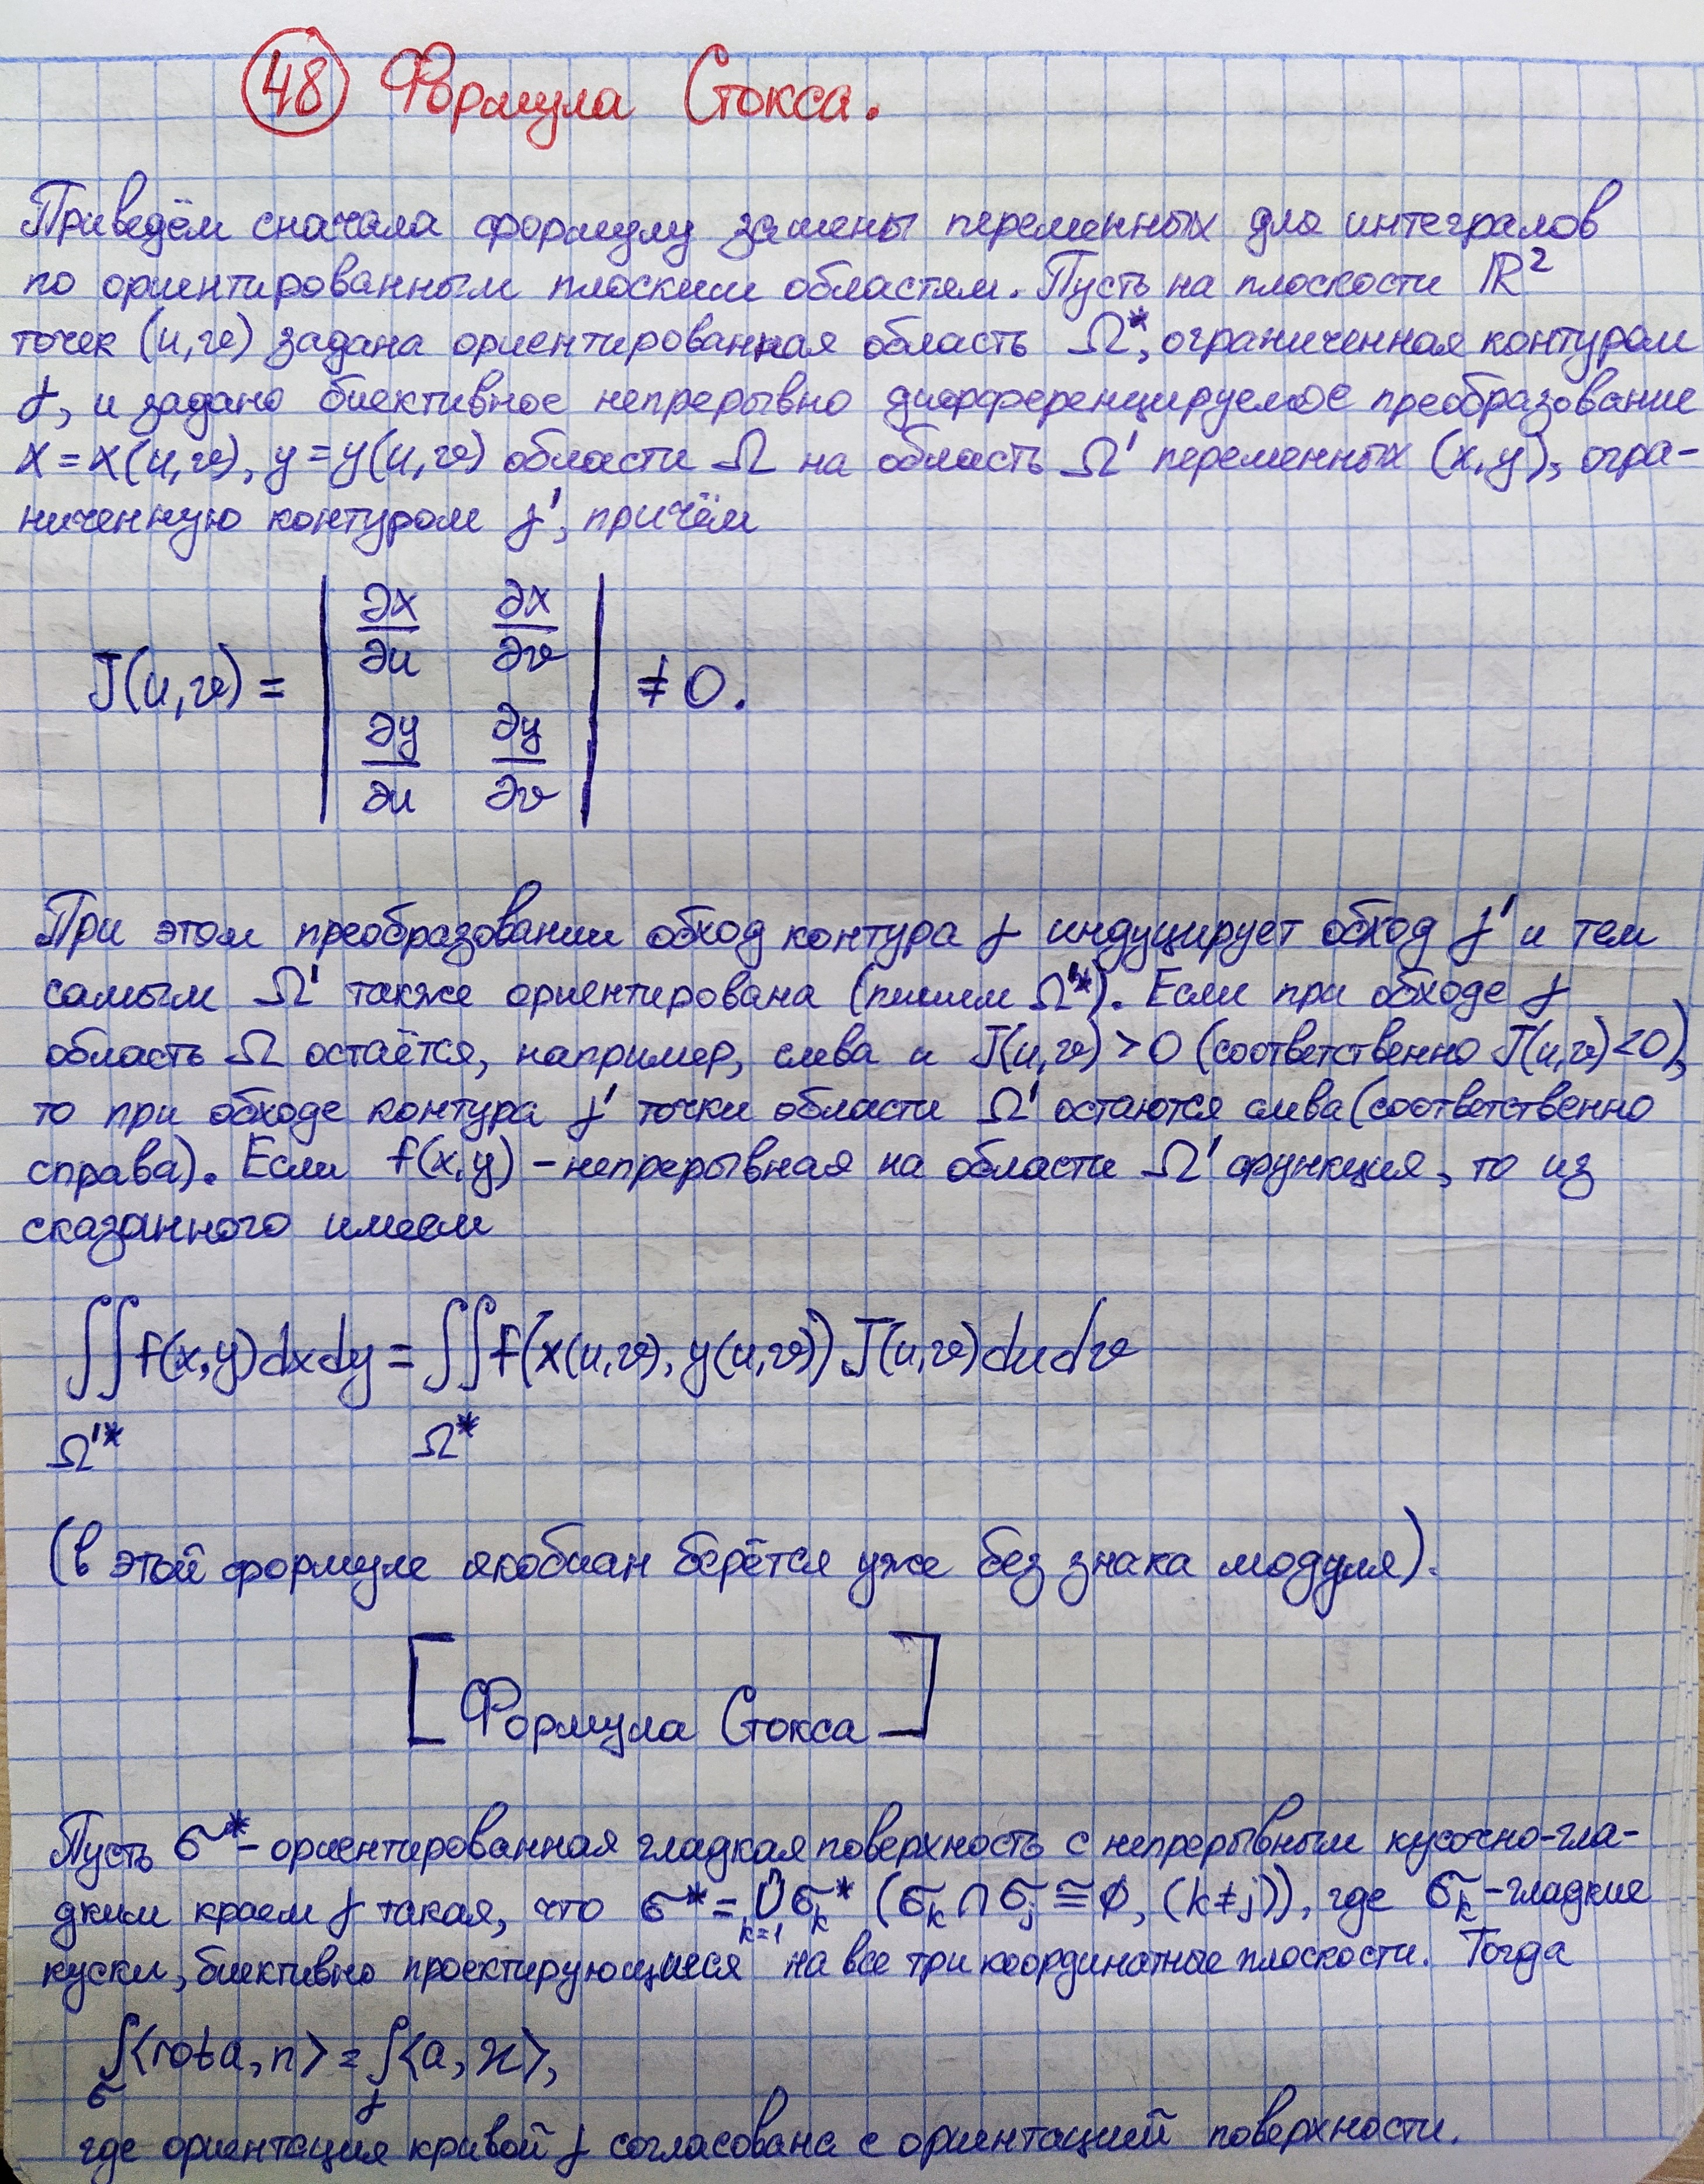 48 Формула Стокса.
Приведём сначала формулу замены переменных для интегралов
по ориентированным плоским областям. Пусть на плоскости ℝ²
точек (u,v) задана ориентированная область Ω*, ограниченная контуром
γ, и задано биективное непрерывно дифференцируемое преобразование
x = x(u,v), y = y(u,v) области Ω на область Ω' переменных (x,y), огра-
ниченную контуром γ', причём
J(u,v) = | ∂x/∂u ∂x/∂v |
| ∂y/∂u ∂y/∂v | ≠ 0.
При этом преобразовании обход контура γ индуцирует обход γ' и тем
самым Ω' также ориентирована (пишем Ω'*). Если при обходе γ
область Ω остаётся, например, слева и J(u,v) > 0 (соответственно J(u,v) < 0),
то при обходе контура γ' точки области Ω' остаются слева (соответственно
справа). Если f(x,y) – непрерывная на области Ω' функция, то из
сказанного имеем
∬ f(x,y)dxdy = ∬ f(x(u,v), y(u,v)) J(u,v)dudv
Ω'* Ω*
(в этой формуле якобиан берётся уже без знака модуля).
[Формула Стокса]
Пусть σ* – ориентированная гладкая поверхность с непрерывным кусочно-гла-
дким краем γ такая, что σ* = ⋃ⁿₖ₌₁ σₖ* (σₖ ∩ σⱼ ≅ ∅, (k ≠ j)), где σₖ – гладкие
куски, биективно проектирующиеся на все три координатные плоскости. Тогда
∫⟨rot a, n⟩ = ∫⟨a, ϰ⟩,
σ γ
где ориентация кривой γ согласована с ориентацией поверхности.